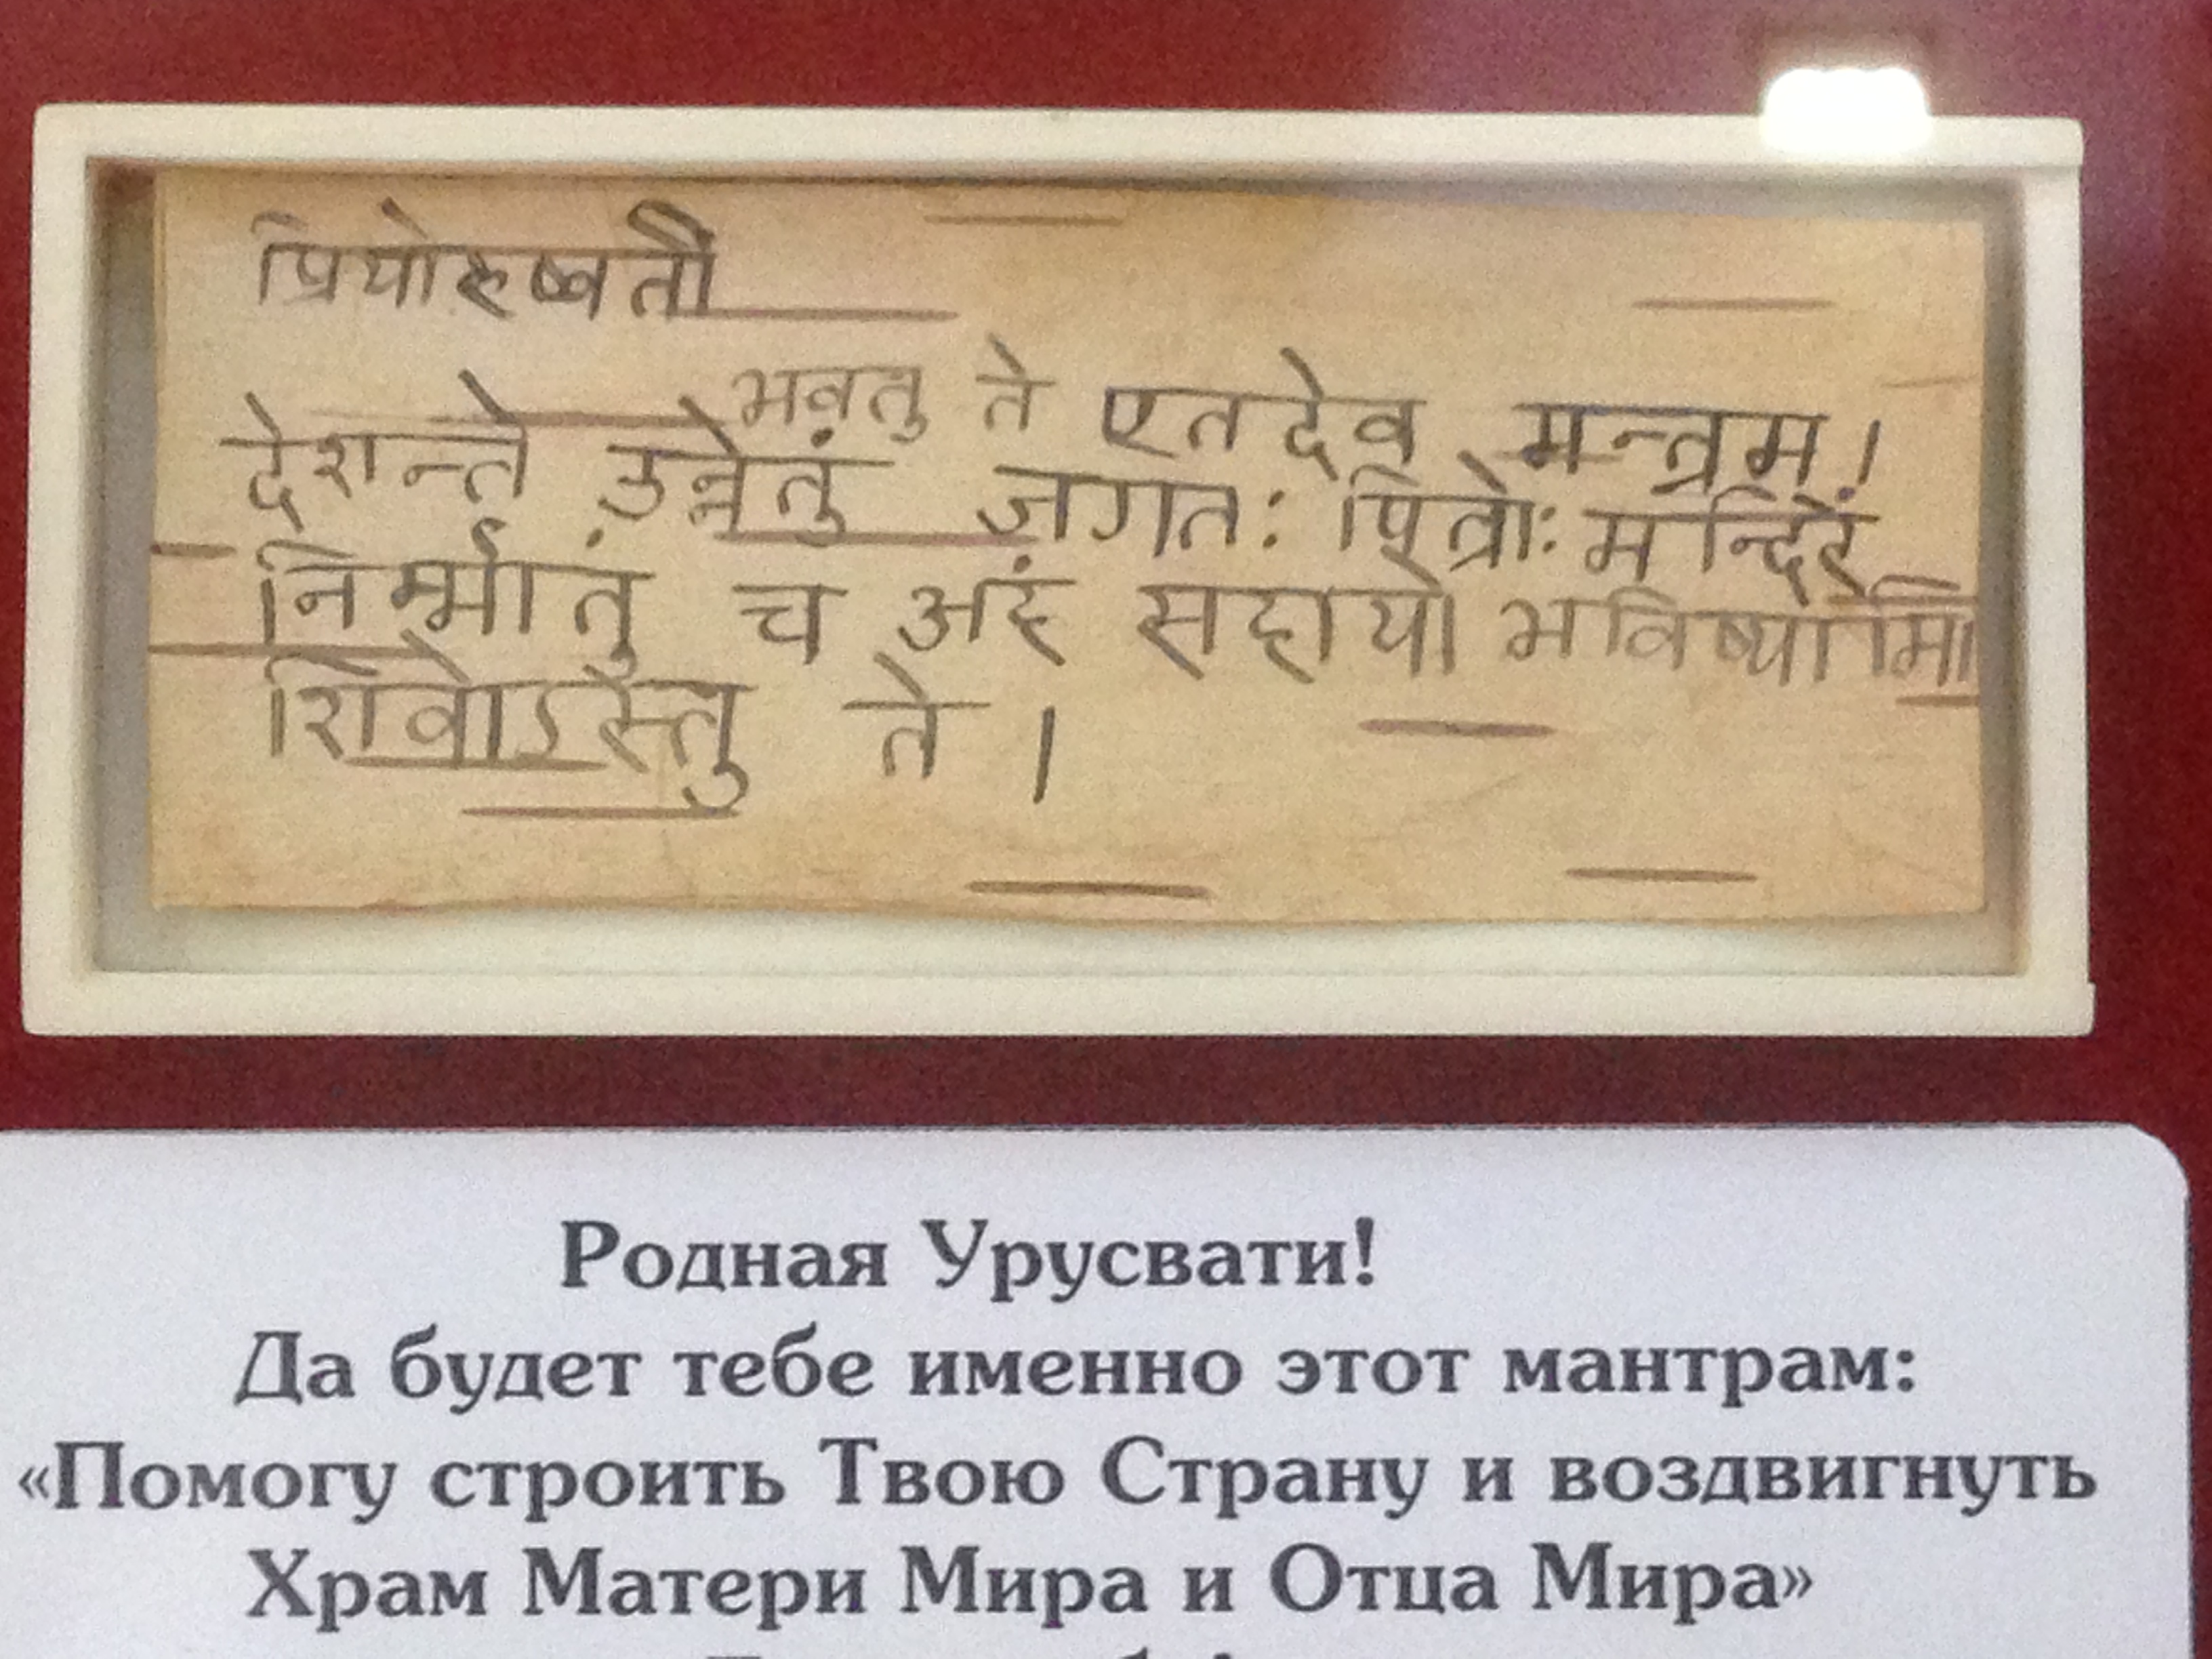 प्रियोरुष्वती
भवतु ते एतदेव मन्त्रम।
देशन्ते उन्नेतुं जगतः पित्रोः मन्दिरं
निर्म्मातुं च अहं सहायो भविष्यामि
शिवोऽस्तु ते।
Родная Урусвати!
Да будет тебе именно этот мантрам:
«Помогу строить Твою Страну и воздвигнуть
Храм Матери Мира и Отца Мира»